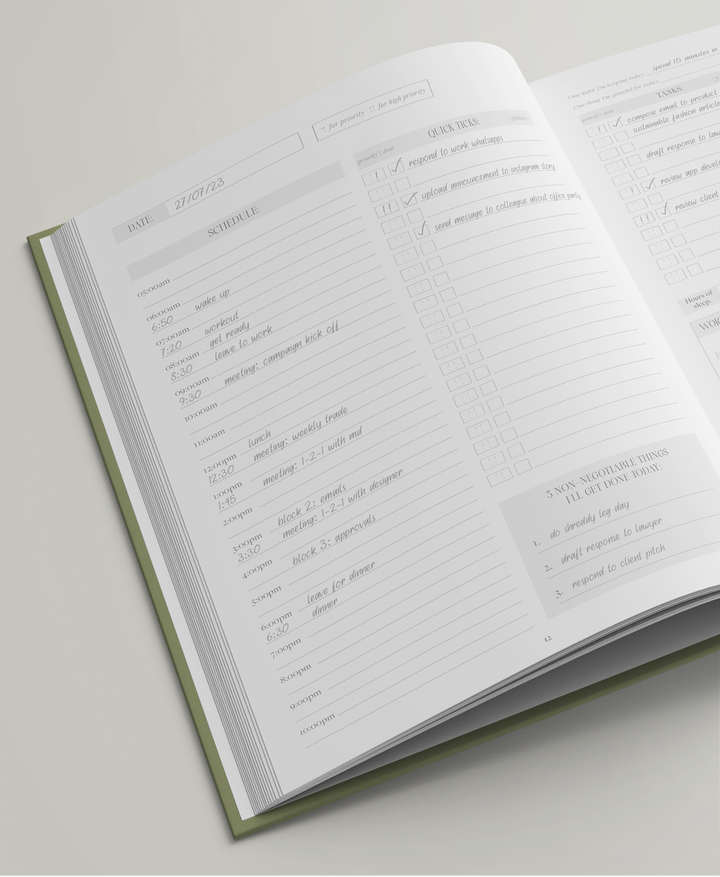 DATE: 27/07/23
! for priority !! for high priority
SCHEDULE:
05:00am
06:00am
6:50 wake up
07:00am workout
7:20 get ready
08:00am leave to work
8:30
09:00am meeting: campaign kick off
9:30
10:00am
11:00am
12:00pm lunch
12:30 meeting: weekly trade
1:00pm
1:45 meeting: 1-2-1 with md
2:00pm
3:00pm block 2: emails
3:30 meeting: 1-2-1 with designer
4:00pm block 3: approvals
5:00pm
6:00pm leave for dinner
6:30 dinner
7:00pm
8:00pm
9:00pm
10:00pm
QUICK TICKS:
priority | done
! respond to work whatsapp
!! upload announcement to instagram story
send message to colleague about office party
3 NON-NEGOTIABLE THINGS
I'LL GET DONE TODAY:
1. do shreddy leg day
2. draft response to lawyer
3. respond to client pitch
12
One habit I'm keeping today: spend 15 minutes in
One thing I'm grateful for today:
TASKS:
priority | done
! compose email to product
sustainable fashion article
draft response to law
! review app develo
!! review client
Hours of
sleep: